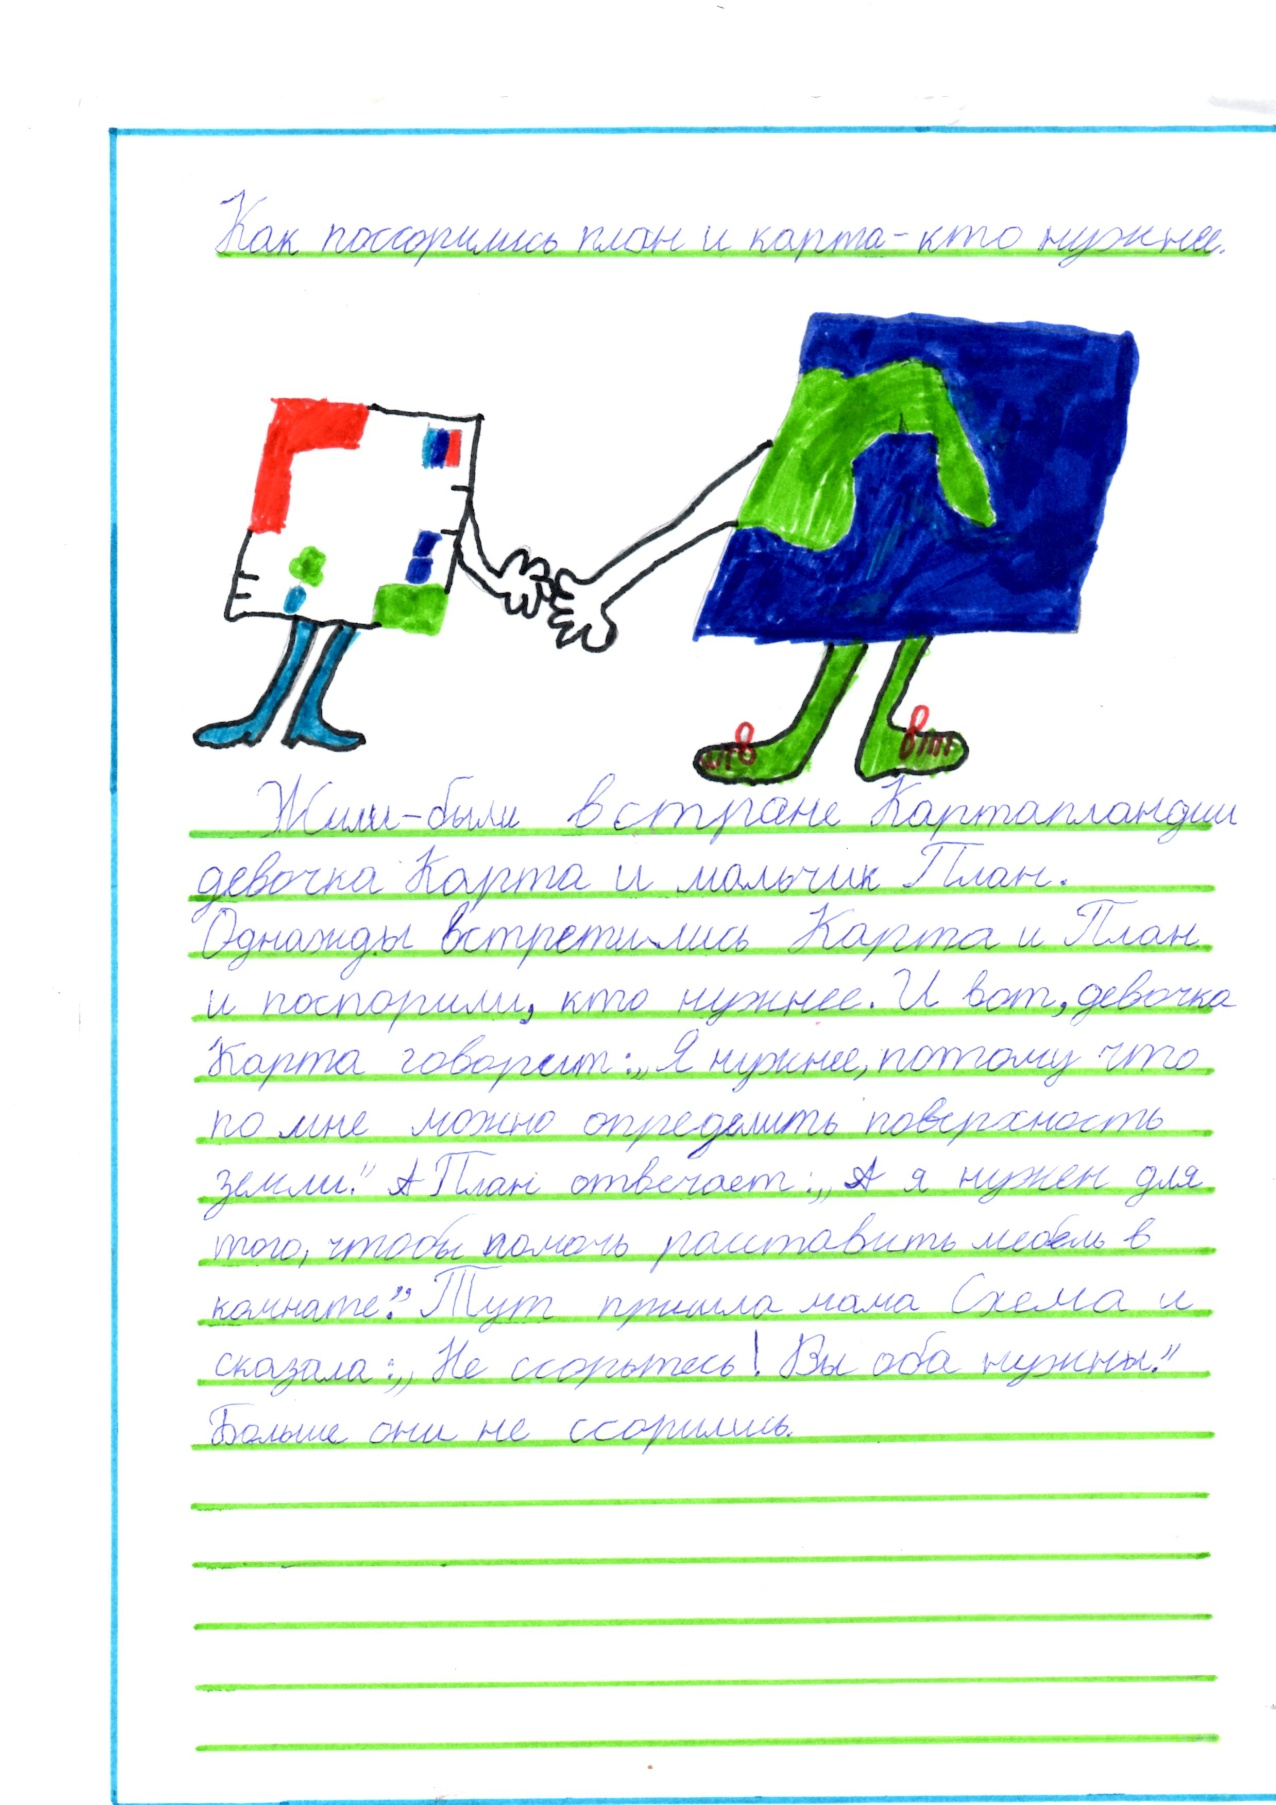 Как поссорились план и карта-кто нужнее.
Жили-были в стране Картапландии
девочка Карта и мальчик План.
Однажды встретились Карта и План
и поспорили, кто нужнее. И вот, девочка
Карта говорит: „Я нужнее, потому что
по мне можно определить поверхность
земли." А План отвечает: „А я нужен для
того, чтобы помочь расставить мебель в
комнате." Тут пришла мама Схема и
сказала: „Не ссорьтесь! Вы оба нужны."
Больше они не ссорились.